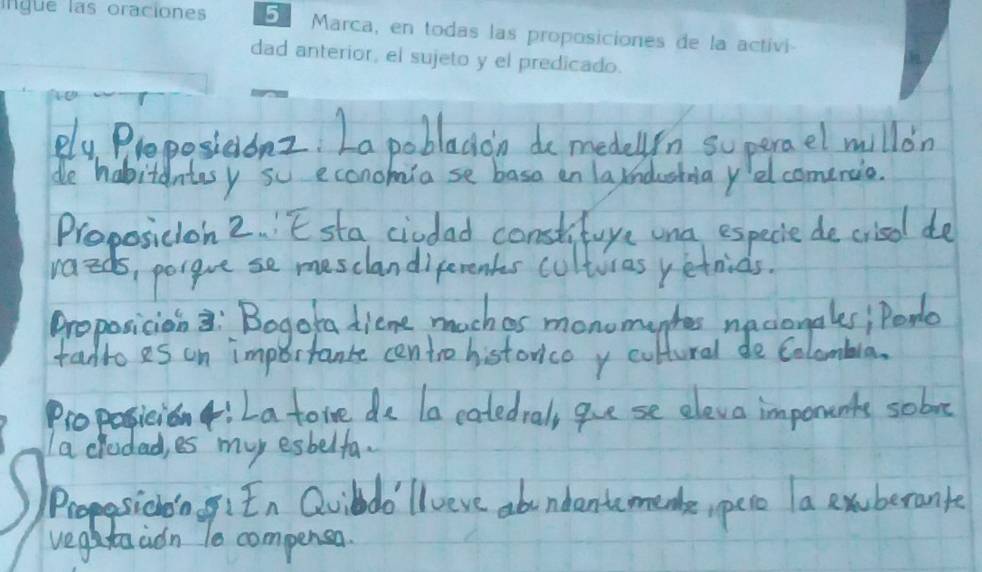 ingue las oraciones
5 Marca, en todas las proposiciones de la activi-
dad anterior, el sujeto y el predicado.
Proposición 1: La población de medellín supera el millón
de habitantes y su economía se basa en la industria y el comercio.
Proposición 2: Esta ciudad constituye una especie de crisol de
razas, porque se mesclan diferentes culturas y etnias.
Proposición 3: Bogota tiene muchos monumentos nacionales; Por lo
tanto es un importante centro historico y cultural de Colombia.
Proposición 4: La torre de la catedral, que se eleva imponente sobre
la ciudad, es muy esbelta.
Proposición 5: En Quibdó llueve abundantemente, pero la exuberante
vegetación lo compensa.